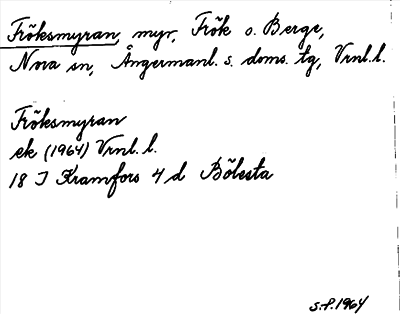 Fröksmyran, myr, Frök o. Berge,
Nora sn, Ångermanl. s. doms. tg, Vrnl. l.
Fröksmyran
ek (1964) Vrnl. l.
18 I Kramfors 4 d Bölesta
S.P. 1964